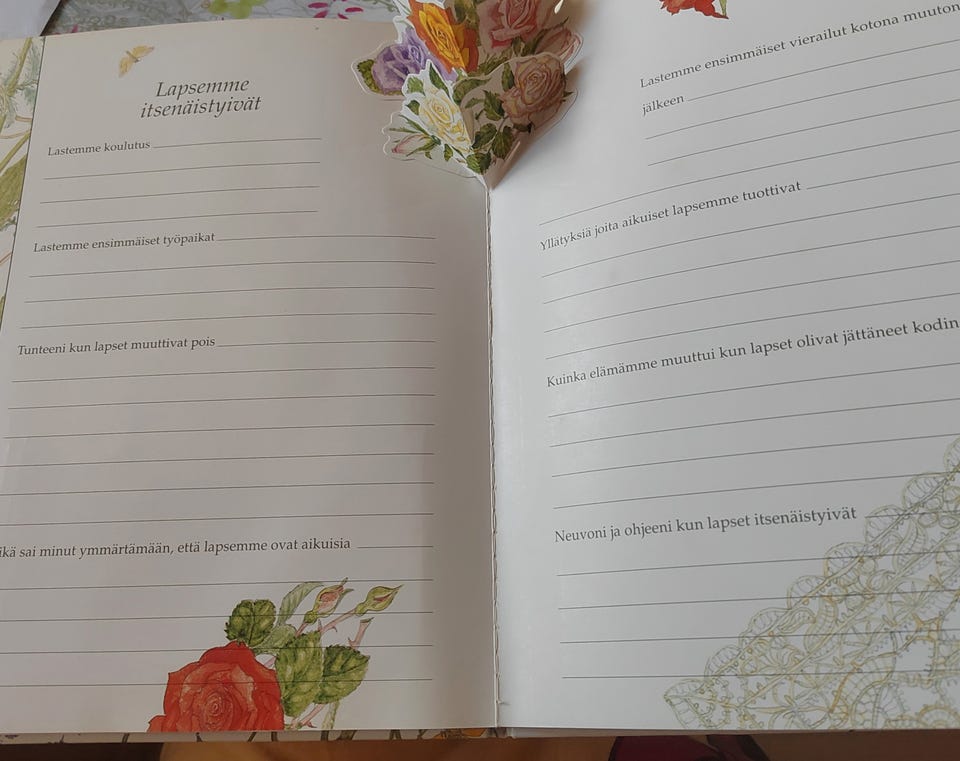 Lapsemme
itsenäistyivät
Lastemme koulutus
Lastemme ensimmäiset työpaikat
Tunteeni kun lapset muuttivat pois
ikä sai minut ymmärtämään, että lapsemme ovat aikuisia
Lastemme ensimmäiset vierailut kotona muuton
jälkeen
Yllätyksiä joita aikuiset lapsemme tuottivat
Kuinka elämämme muuttui kun lapset olivat jättäneet kodin
Neuvoni ja ohjeeni kun lapset itsenäistyivät